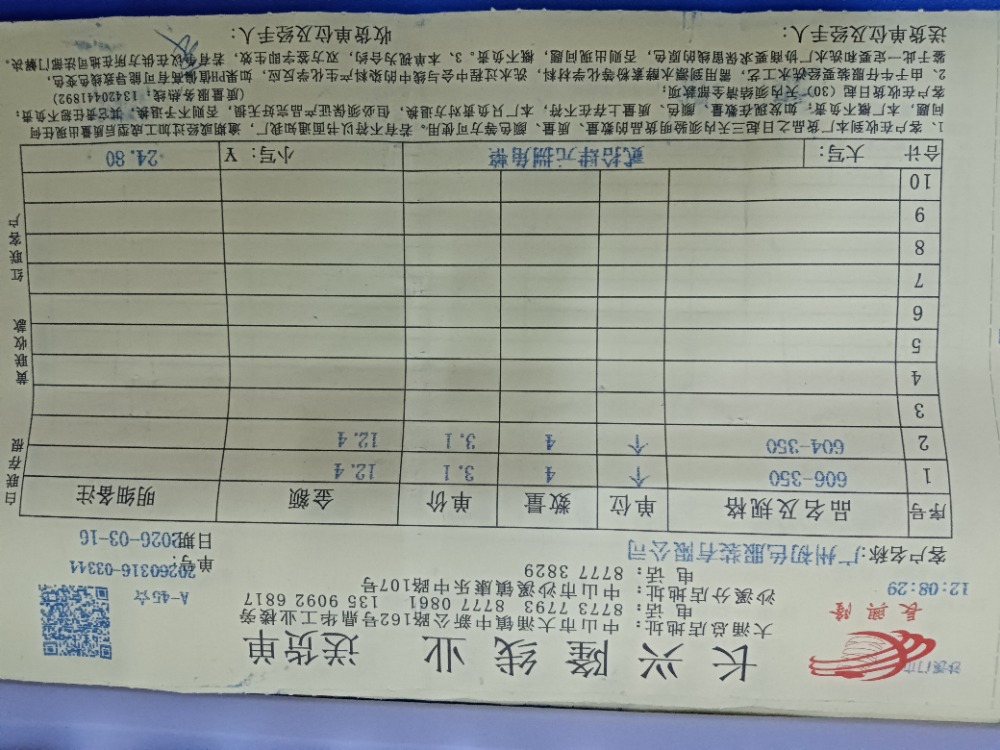 沙溪门市
長興隆
长兴隆线业 送货单
大涌总店地址：中山市大涌镇中新公路162号鼎华工业楼旁
电话：8773 7793 8777 0861 135 9092 6817
沙溪分店地址：中山市沙溪镇康乐中路107号
电话：8777 3829
12:08:29
A-45六
单号：20260316-03344
客户名称：广州初色服装有限公司
日期2026-03-16
序号 品名及规格 单位 数量 单价 金额 明细备注
1 606-350 个 4 3.1 12.4
2 604-350 个 4 3.1 12.4
3
4
5
6
7
8
9
10
合计 大写：贰拾肆元捌角整 小写：￥ 24.80
白联存根
黄联收款
红联客户
1、客户在收到本厂货品之日起三天内须验明货品的数量、质量、颜色等方可使用。若有不符以书面通知我厂，逾期或经过加工成型后质量出现任何
问题，本厂概不负责；如发现在数量、颜色、质量上存在不符，本厂只负责对方退换，但必须保证产品完好无损，否则不予退换，其它责任概不负责；
客户在收货日起（30）天内必须结清全部款项；（质量服务热线：13420441892）
2、由于牛仔服装要经洗水工艺，需用到漂水酵素粉等化学材料，洗水过程中会与线中的染料产生化学反应，如果PH值偏高有可能导致线色变色，
鉴于此一定要和洗水厂协商要求保留线的原色，否则出现问题，概不负责。3、本单视为合约，双方签字即生效，若有争议在供方所在地司法部门解决。
送货单位及经手人： 收货单位及经手人：